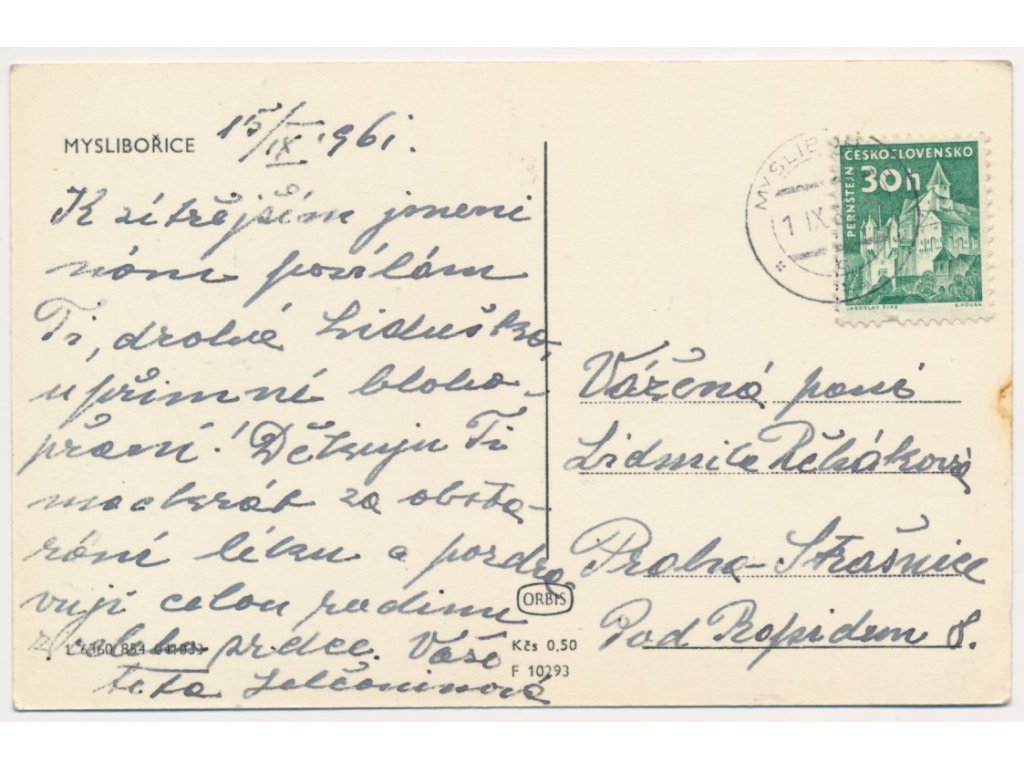 MYSLIBOŘICE 15/IX 1961.
K zítřejším jmeni
nám posílám
Ti, drahá Liduško,
upřimné blaho-
přání! Děkuju Ti
mockrát za obsta-
rání léku a pozdra
vuji celou rodinu
z celého srdce. Vaše
teta
1 6360 854 041033
ORBIS
Kčs 0,50
F 10293
MYSLIB
1 IX
ČESKOSLOVENSKO
30h
PERNŠTEJN
JAROSLAV ŠVÁB
Vážená paní
Lidmila Řeháková
Praha-Strašnice
Pod Rapidem 8.